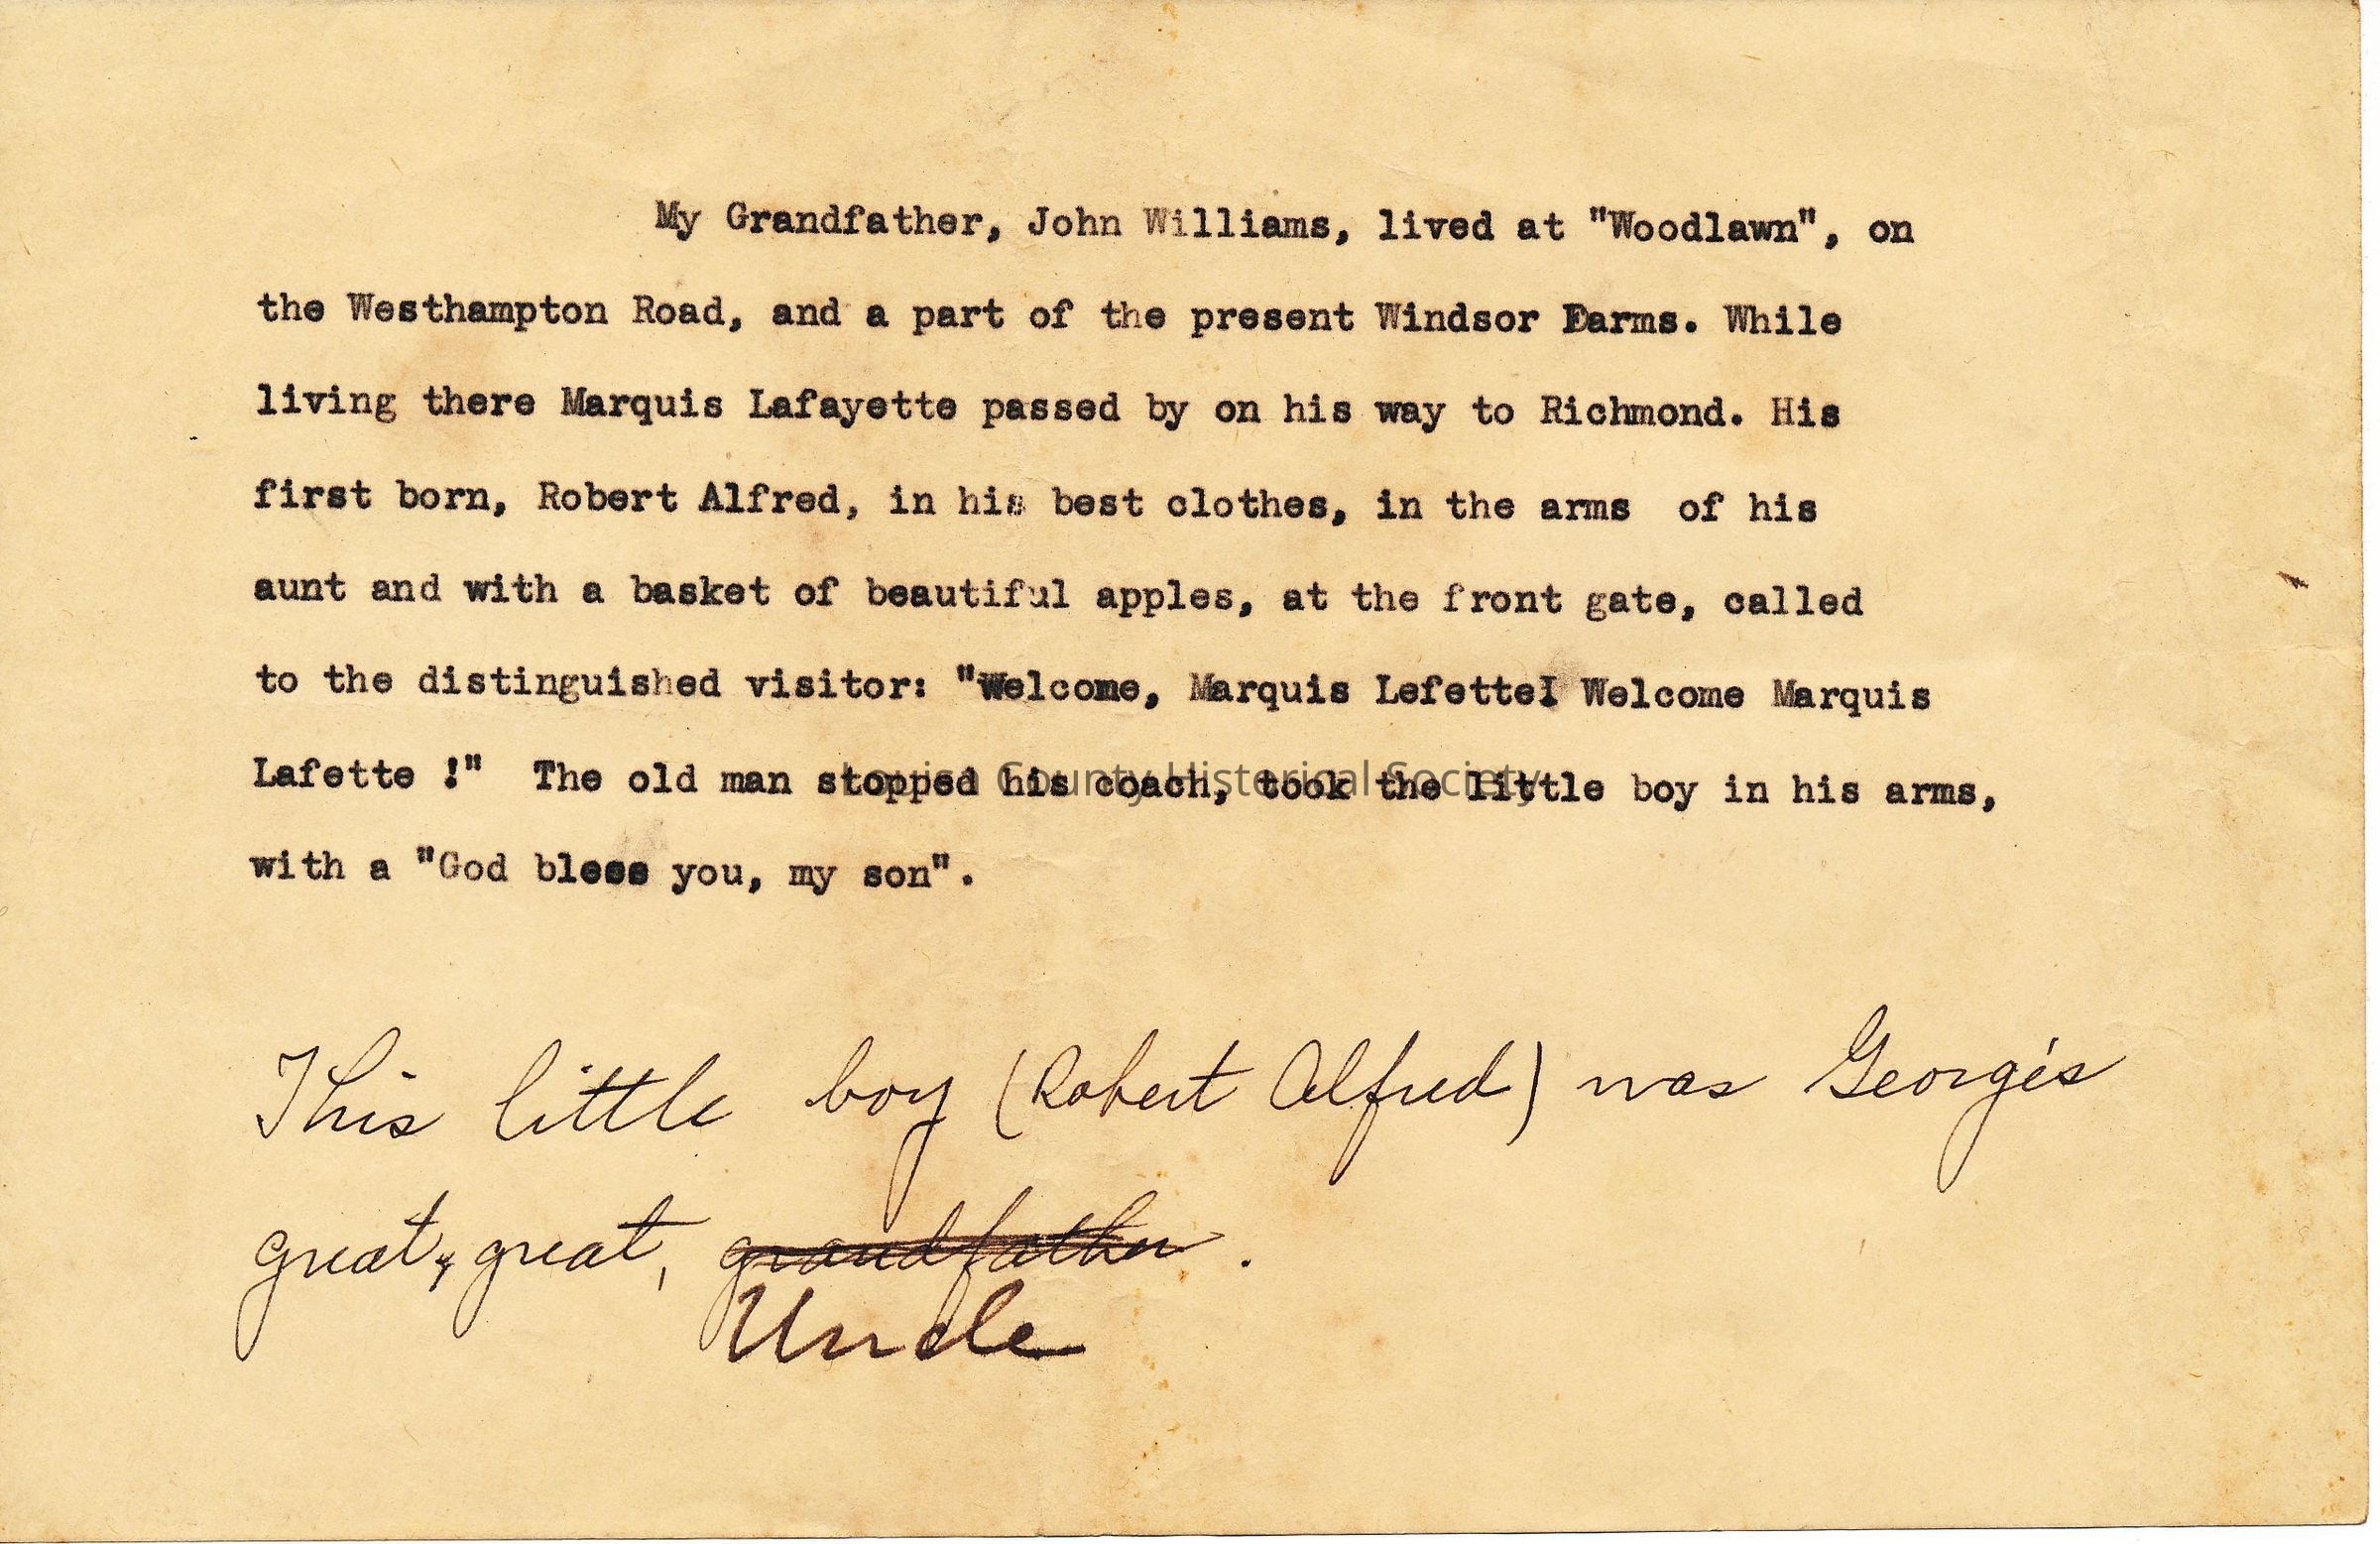 My Grandfather, John Williams, lived at "Woodlawn", on
the Westhampton Road, and a part of the present Windsor Farms. While
living there Marquis Lafayette passed by on his way to Richmond. His
first born, Robert Alfred, in his best clothes, in the arms of his
aunt and with a basket of beautiful apples, at the front gate, called
to the distinguished visitor: "Welcome, Marquis Lefette! Welcome Marquis
Lafette !" The old man stopped his coach, took the little boy in his arms,
Louisa County Historical Society
with a "God bless you, my son".
This little boy (Robert Alfred) was George's
great, great, grandfather.
Uncle